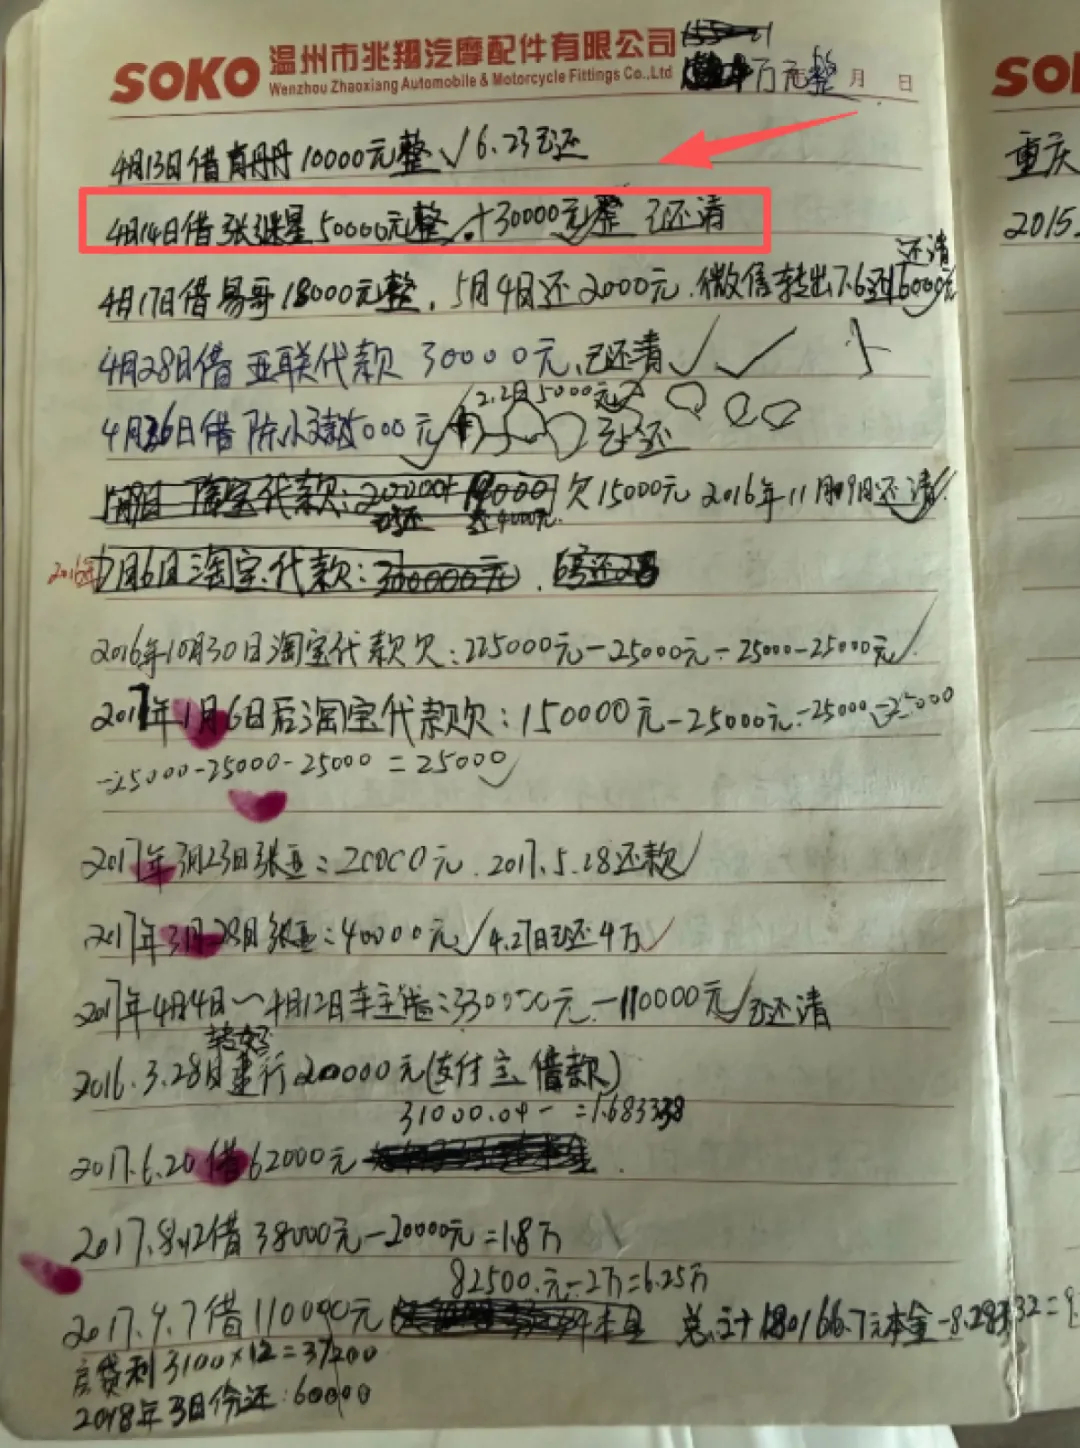 SOKO 温州市兆翔汽摩配件有限公司
Wenzhou Zhaoxiang Automobile & Motorcycle Fittings Co.,Ltd
万元整 月 日
4月13日借肖丹丹10000元整√ 6.23已还
4月14日借张继星50000元整 +30000元整 已还清
还清
4月17日借易哥18000元整, 5月4日还2000元.微信转出7.6还16000元
4月28日借亚联代款 30000元,已还清√ √
2.2日5000元
4月26日借陈小 5000元 已还
淘宝代款:200000+ 欠15000元 2016年11月9日还清
已还 还4000元.
2016年7月6日淘宝代款:300000元.
2016年10月30日淘宝代款欠:225000元-25000元-25000-25000元√
2017年1月6日后淘宝代款欠:150000元-25000元-25000-25000
-25000-25000-25000=25000√
2017年3月23日张亚:20000元.2017.5.28还款√
2017年3月28日张亚:40000元√4.27日已还4万√
2017年4月4日~4月12日车主借:330000元-110000元√已还清
2016.3.28日建行200000元(支付宝借款)
31000.04- =1.683338
2017.6.20借62000元
2017.8.12借38000元-20000元=1.8万
82500.元-2万=6.25万
2017.9.7借110000元 本金 总计180166.7元本金-8.28332=
房贷利3100×12=37200
2018年3日份还:60000
SO
重庆
2015.